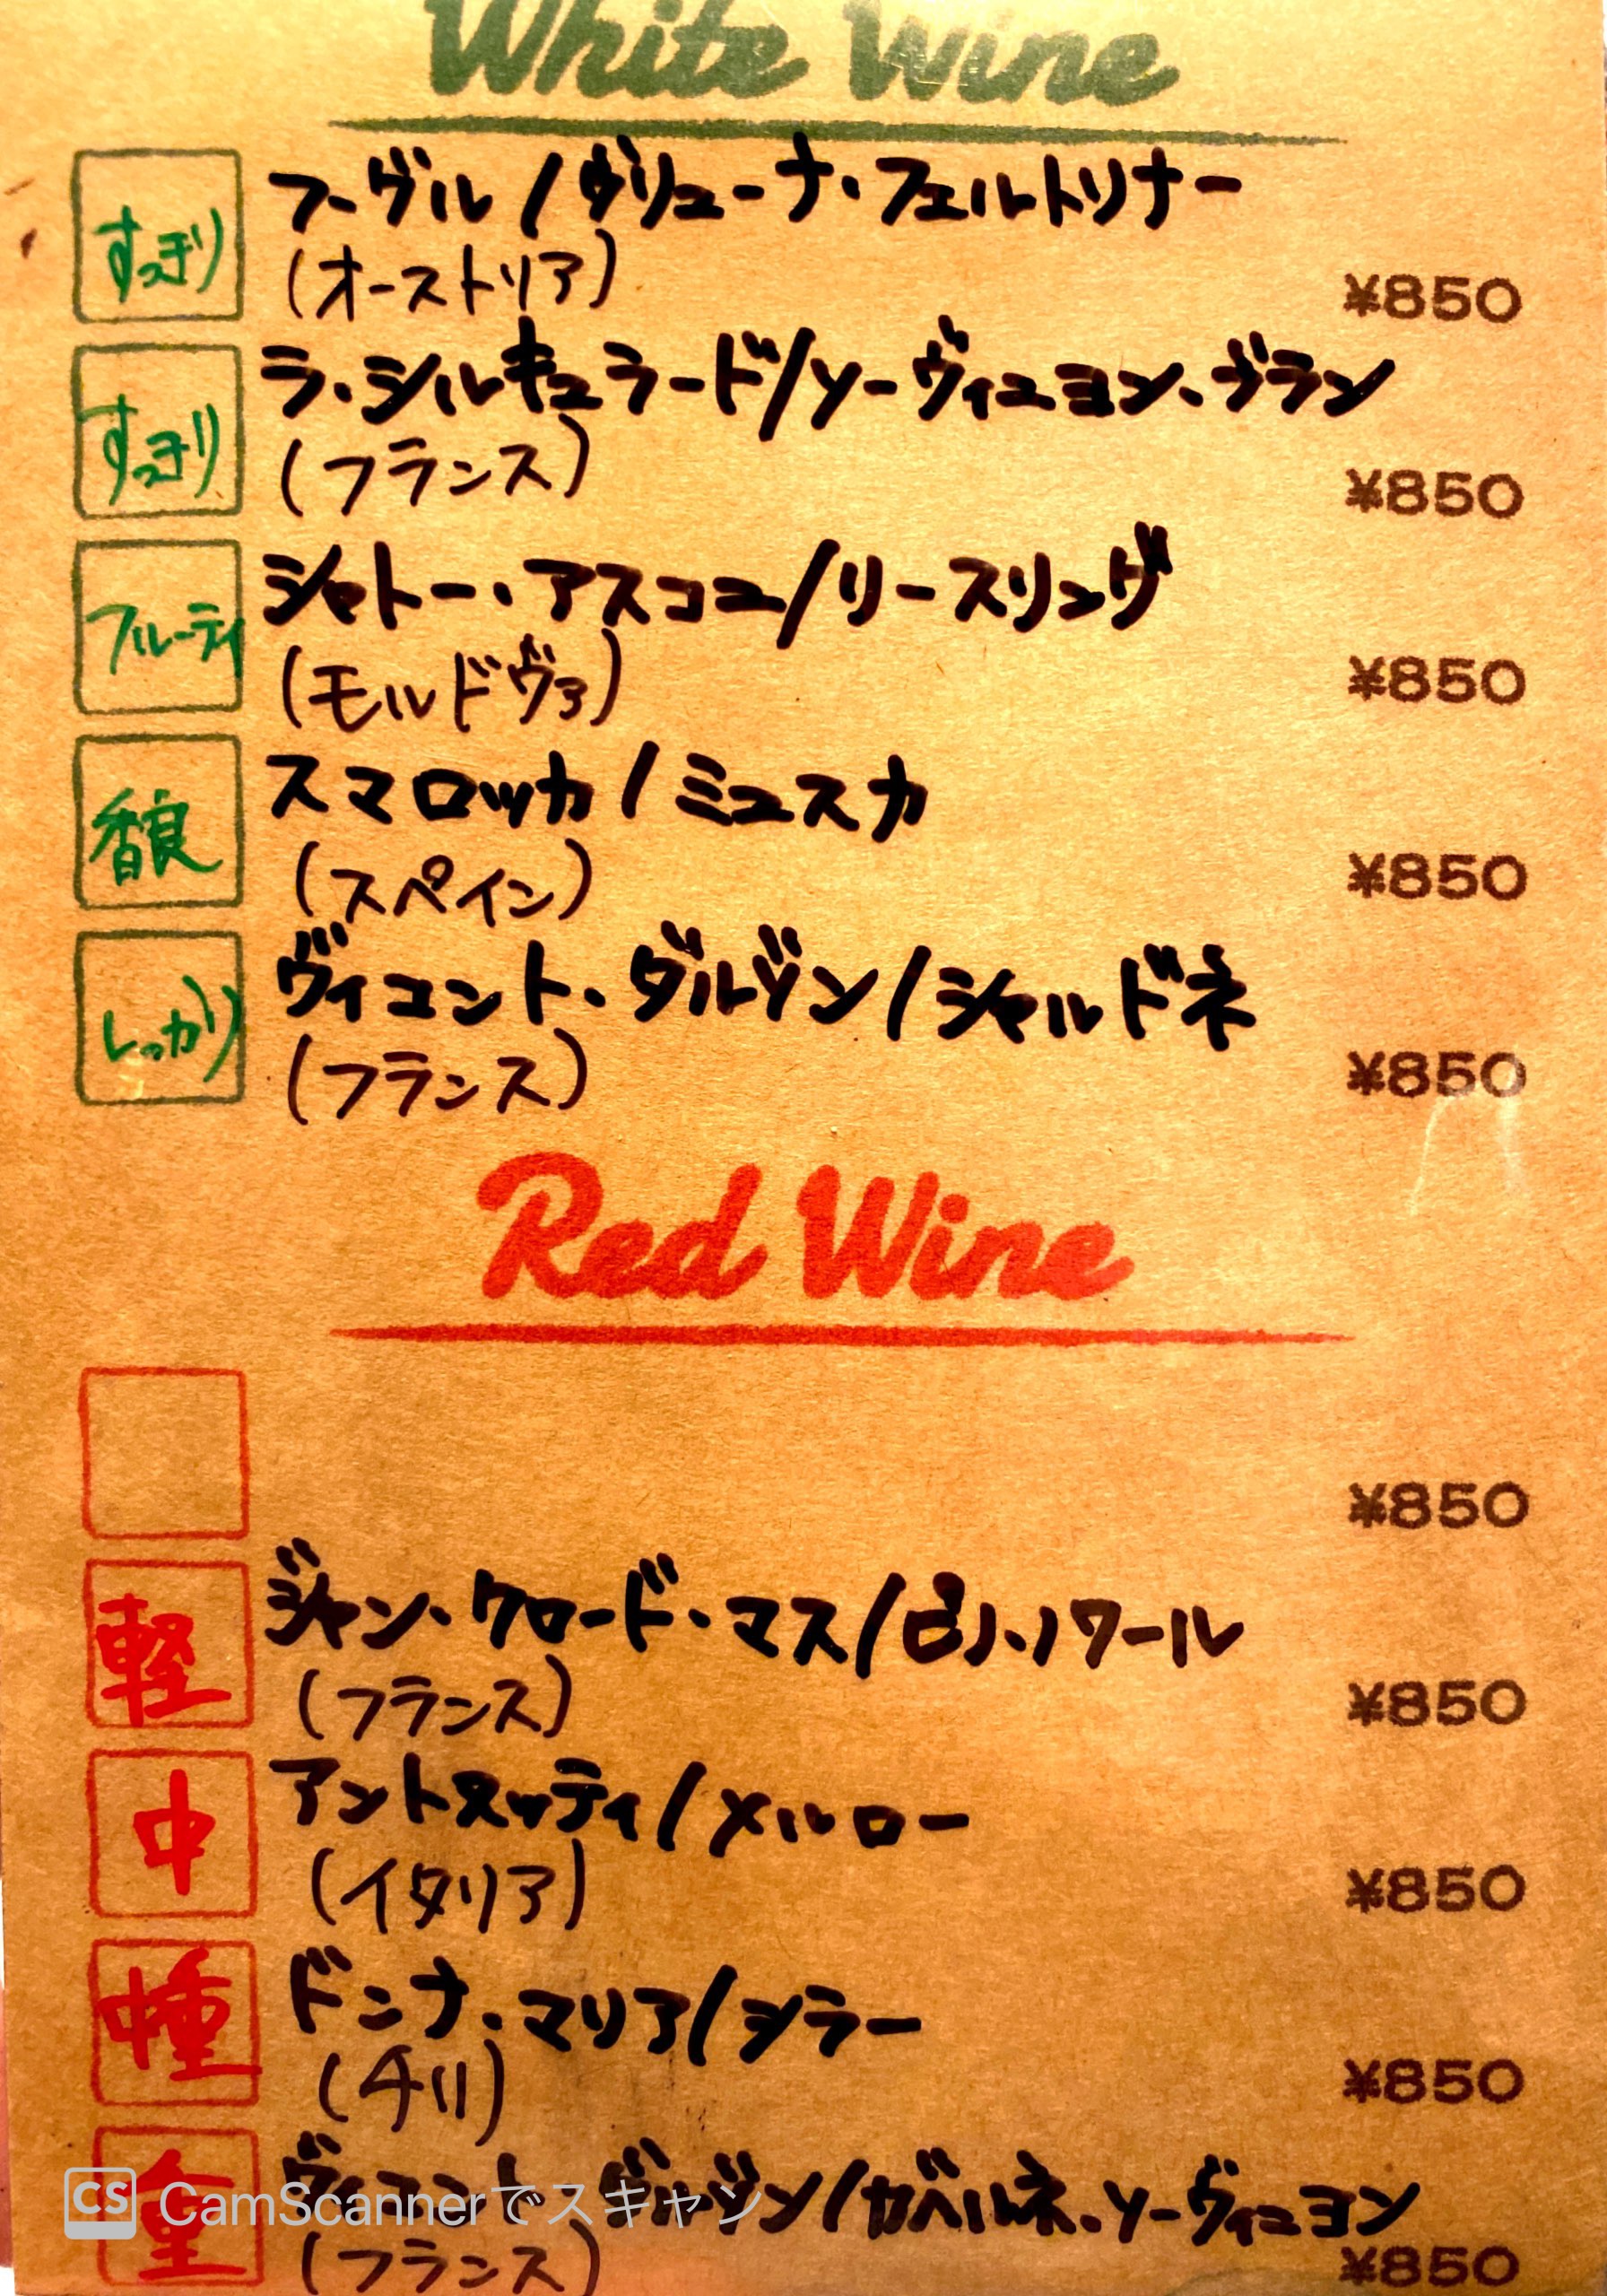 White Wine
すっきり
フーグル/グリューナ・フェルトリナー
(オーストリア)
¥850
すっきり
ラ・シルキュラード/ソーヴィニヨン、ブラン
(フランス)
¥850
フルーティ
シャトー・アスコニ/リースリング
(モルドヴァ)
¥850
香良
スマロッカ/ミュスカ
(スペイン)
¥850
しっかり
ヴィコント・ダルゾン/シャルドネ
(フランス)
¥850
Red Wine
¥850
軽
ジャン・クロード・マス/ピノ・ノワール
(フランス)
¥850
中
アントヌッティ/メルロー
(イタリア)
¥850
中重
ドンナ・マリア/シラー
(チリ)
¥850
重
ヴィコント ダルゾン/カベルネ、ソーヴィニヨン
(フランス)
¥850
CS CamScannerでスキャン